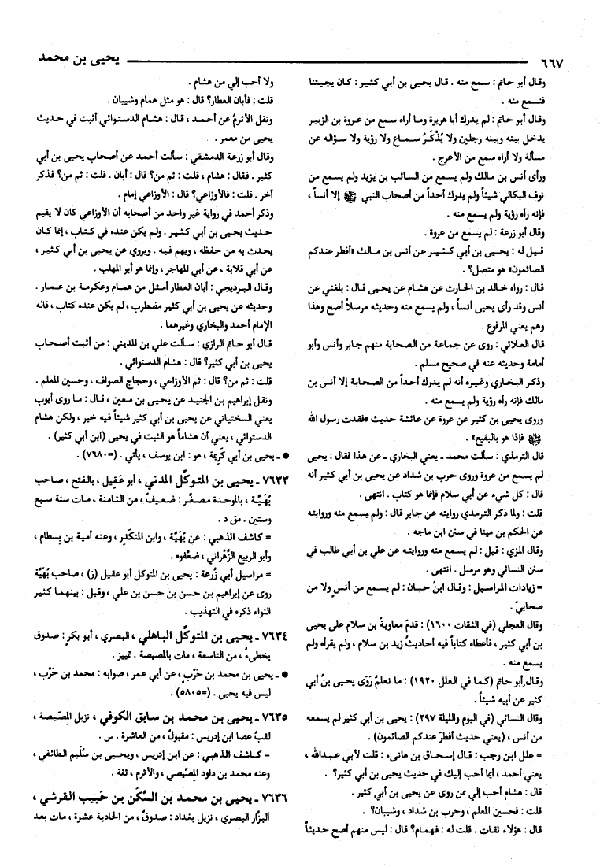 ٦٦٧
يحيى بن محمد
وقال أبو حاتم : سمع منه . قال يحيى بن أبي كثير : كان يجيبنا
فنسمع منه .
وقال أبو حاتم : لم يدرك أبا هريرة وما أراه سمع من عروة بن الزبير
يدخل بينه وبينه رجلين ولا يُذْكَرُ سماع ولا رؤية ولا سؤاله عن
مسألة ولا أراه سمع من الأعرج .
ورأى أنس بن مالك ولم يسمع من السائب بن يزيد ولم يسمع من
نوف البكالي شيئاً ولم يدرك أحداً من أصحاب النبي ﷺ إلا أنساً ،
فإنه رآه رؤية ولم يسمع منه .
وقال أبو زرعة : لم يسمع من عروة .
قيل له : يحيى بن أبي كثير عن أنس بن مالك «أفطر عندكم
الصائمون» هو متصل؟ .
قال : رواه خالد بن الحارث عن هشام عن يحيى قال : بلغني عن
أنس وقد رأى يحيى أنساً ، ولم يسمع منه وحديثه مرسلاً أصح وهذا
وهم يعني المرفوع
قال العلائي : روى عن جماعة من الصحابة منهم جابر وأنس وأبو
أمامة وحديثه عنه في صحيح مسلم .
وذكر البخاري وغيره أنه لم يدرك أحداً من الصحابة إلا أنس بن
مالك فإنه رآه رؤية ولم يسمع منه .
وروى يحيى بن كثير عن عروة عن عائشة حديث «فقدت رسول الله
ﷺ فإذا هو بالبقيع» .
قال الترمذي : سألت محمد - يعني البخاري - عن هذا فقال : يحيى
لم يسمع من عروة وروى حرب بن شداد عن يحيى بن أبي كثير أنه
قال : كل شيء عن أبي سلام فإنما هو كتاب . انتهى .
قلت : ولما ذكر الترمذي روايته عن جابر قال : ولم يسمع منه وروايته
عن الحكم بن مينا في سنن ابن ماجه .
وقال المزي : قيل : لم يسمع منه وروايته عن علي بن أبي طالب في
سنن النسائي وهو مرسل . انتهى .
= زيادات المراسيل : وقال ابنُ حبان : لم يسمع من أنسٍ ولا من
صحابيّ .
وقال العجلي (في الثقات ١٦٠٠) : قدمَ معاويةُ بن سلام على يحيى
بن أبي كثير ، فأعطاه كتاباً فيه أحاديثُ زيد بن سلام ، ولم يقرأه ولم
يسمع منه .
وقال أبو حاتم (كما في العلل ١٩٢٠) : ما نعلمُ رَوَى يحيى بنُ أبي
كثير عن أبيه شيئاً .
وقال النسائي (في اليوم والليلة ٢٩٧) : يحيى بن أبي كثير لم يسمعه
من أنس ، (يعني حديث أفطر عندكم الصائمون) .
= علل ابن رجب : قال إسحاق بن هانىء : قلت لأبي عبدالله ،
يعني أحمد ، أيما أحب إليك في حديث يحيى بن أبي كثير؟ .
قال : هشام أحب إليَّ ممن روى عن يحيى بن أبي كثير .
قلت : فحسين المعلم ، وحرب بن شداد ، وشيبان؟ .
قال : هؤلاء ثقات . قلت له : فهمام؟ قال : ليس منهم أصح حديثاً
ولا أحب إلي من هشام .
قلت : فأبان العطار؟ قال : هو مثل همام وشيبان .
ونقل الأثرمُ عن أحمد ، قال : هشام الدستوائي أثبت في حديث
يحيى من معمر .
وقال أبو زرعة الدمشقي : سألت أحمد عن أصحاب يحيى بن أبي
كثير . فقال : هشام ، قلت : ثم من؟ قال : أبان . قلت : ثم من؟ فذكر
آخر . قلت : فالأوزاعي؟ قال : الأوزاعي إمام .
وذكر أحمد في رواية غير واحد من أصحابه أن الأوزاعي كان لا يقيم
حديث يحيى بن أبي كثير . ولم يكن عنده في كتاب ، إنما كان
يحدث به من حفظه ، ويهم فيه . ويروي عن يحيى بن أبي كثير ،
عن أبي قلابة ، عن أبي المهاجر ، وإنما هو أبو المهلب .
وقال البرديجي : أبان العطار أمثل من همام وعكرمة بن عمار .
وحديثه عن يحيى بن أبي كثير مضطرب ، لم يكن عنده كتاب ، قاله
الإمام أحمد والبخاري وغيرهما .
قال أبو حاتم الرازي : سألت علي بن المديني : من أثبت أصحاب
يحيى بن أبي كثير؟ قال : هشام الدستوائي .
قلت : ثم من؟ قال : ثم الأوزاعي ، وحجاج الصواف ، وحسين المعلم .
ونقل إبراهيم بن الجنيد عن يحيى بن معين ، قال : ما روى أيوب
يعني السختياني عن يحيى بن أبي كثير شيئاً فيه خير ، ولكن هشام
الدستوائي ، يعني أن هشاماً هو الثبت في يحيى (ابن أبي كثير) .
● ـ يحيى بن أبي كَرِيمَة ، هو : ابن يوسف ، يأتي . (=٧٦٨٠) .
٧٦٣٣ ـ يحيى بن المتوكّل المدني ، أبو عَقِيل ، بالفتح ، صاحب
بُهَيَّة ، بالموحدة مصغّر : ضعيفٌ ، من الثامنة ، مات سنة سبع
وستين . مق د .
= كاشف الذهبي : عن بُهَيَّة ، وابن المنكَدِر ، وعنه أمية بن بِسطام ،
وأبو الربيع الزَّهراني ، ضعَّفوه .
= مراسيل أبي زُرعة : يحيى بن المتوكل أبو عقيل (ز) ، صاحب بُهَيَّة
روى عن إبراهيم بن حسن بن حسن بن علي ، وقيل : بينهما كثير
النواء ذكره في التهذيب .
٧٦٣٤ ـ يحيى بن المتوكّل الباهلي ، البصري ، أبو بكرٍ : صدوق
يخطىءُ ، من التاسعة ، مات بالمصيصة . تمييز .
● ـ يحيى بن محمد بن حَرْبٍ ، عن أبي عمر ، صوابه : محمد بن حَرْب ،
ليس فيه يحيى . (=٥٨٠٥) .
٧٦٣٥ ـ يحيى بن محمد بن سابق الكوفي ، نزيل المصيّصة ،
لقبهُ عصا ابن إدريس : مقبولٌ ، من العاشرة . س .
= كاشف الذهبي : عن ابن إدريس ، ويحيى بن سُلَيم الطائفي ،
وعنه محمد بن داود المصّيصي ، والأثرم ، ثقة .
٧٦٣٦ ـ يحيى بن محمد بن السَّكَن بن حَبيب القرشي ،
البزّار البصري ، نزيل بغداد : صدوقٌ ، من الحادية عشرة ، مات بعد